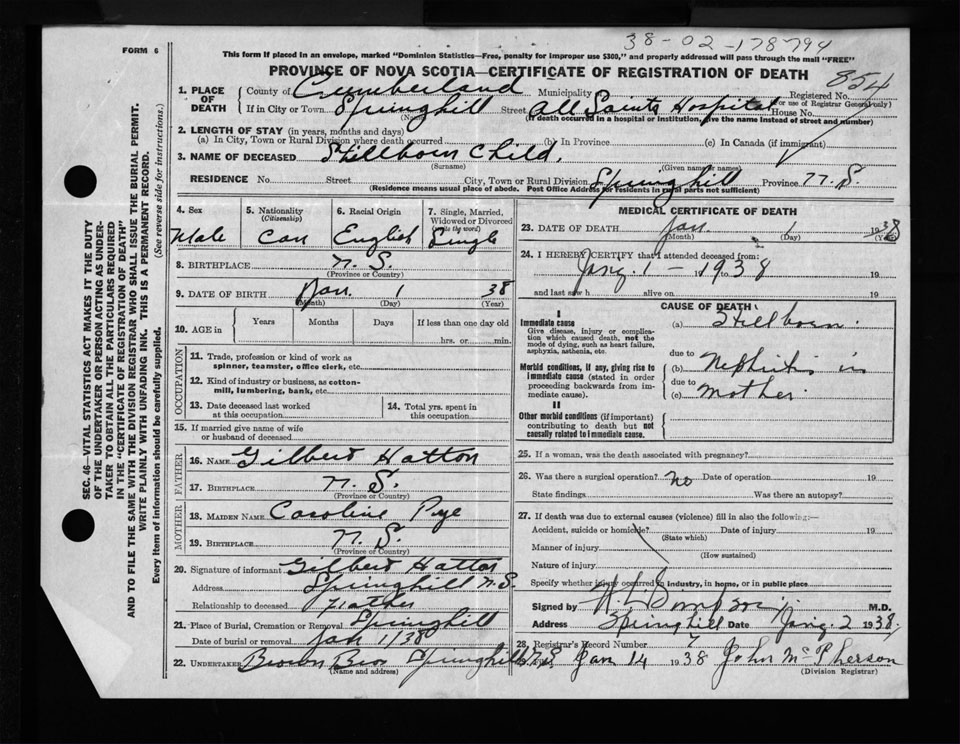 38-02-178794
FORM 6
This form if placed in an envelope, marked "Dominion Statistics—Free, penalty for improper use $300," and properly addressed will pass through the mail "FREE"
PROVINCE OF NOVA SCOTIA—CERTIFICATE OF REGISTRATION OF DEATH
854
1. PLACE OF DEATH
County of Cumberland Municipality Registered No.
(For use of Registrar General only)
If in City or Town Springhill Street All Saints Hospital House No.
(Name) (If death occurred in a hospital or institution, give the name instead of street and number)
2. LENGTH OF STAY (in years, months and days)
(a) In City, Town or Rural Division where death occurred (b) In Province (c) In Canada (if immigrant)
3. NAME OF DECEASED Stillborn Child,
(Surname) (Given name or names)
RESIDENCE No. Street City, Town or Rural Division Springhill Province N. S.
(Residence means usual place of abode. Post Office Address for residents in rural parts not sufficient)
4. Sex 5. Nationality (Citizenship) 6. Racial Origin 7. Single, Married, Widowed or Divorced (write the word)
Male Can English Single
8. BIRTHPLACE N. S.
(Province or Country)
9. DATE OF BIRTH Jan. 1 38
(Month) (Day) (Year)
10. AGE in Years Months Days If less than one day old
hrs. or min.
OCCUPATION
11. Trade, profession or kind of work as spinner, teamster, office clerk, etc.
12. Kind of industry or business, as cotton-mill, lumbering, bank, etc.
13. Date deceased last worked at this occupation
14. Total yrs. spent in this occupation
15. If married give name of wife or husband of deceased
FATHER
16. NAME Gilbert Hatton
17. BIRTHPLACE N. S.
(Province or Country)
MOTHER
18. MAIDEN NAME Caroline Pye
19. BIRTHPLACE N. S.
(Province or Country)
20. Signature of informant Gilbert Hatton
Address Springhill N. S.
Relationship to deceased Father
21. Place of Burial, Cremation or Removal Springhill
Date of burial or removal Jan 1/38
22. UNDERTAKER Brown Bros Springhill N. S.
(Name and address)
MEDICAL CERTIFICATE OF DEATH
23. DATE OF DEATH Jan 1 1938
(Month) (Day) (Year)
24. I HEREBY CERTIFY that I attended deceased from:
Jany. 1 - 1938 19
and last saw h alive on 19
CAUSE OF DEATH
I
Immediate cause
Give disease, injury or complication which caused death, not the mode of dying, such as heart failure, asphyxia, asthenia, etc.
(a) Stillborn.
due to
Morbid conditions, if any, giving rise to immediate cause (stated in order proceeding backwards from immediate cause).
(b) Nephritis in
due to
(c) Mother
II
Other morbid conditions (if important) contributing to death but not causally related to immediate cause.
25. If a woman, was the death associated with pregnancy?
26. Was there a surgical operation? no Date of operation 19
State findings Was there an autopsy?
27. If death was due to external causes (violence) fill in also the following:—
Accident, suicide or homicide? Date of injury 19
(State which)
Manner of injury
(How sustained)
Nature of injury
Specify whether injury occurred in industry, in home, or in public place
Signed by M.D.
Address Springhill Date Jany. 2 1938.
28. Registrar's Record Number 7
Filed Jan 14 1938 John McPherson
(Division Registrar)
SEC. 46—VITAL STATISTICS ACT MAKES IT THE DUTY
OF THE UNDERTAKER OR PERSON ACTING AS UNDER-
TAKER TO OBTAIN ALL THE PARTICULARS REQUIRED
IN THE "CERTIFICATE OF REGISTRATION OF DEATH"
AND TO FILE THE SAME WITH THE DIVISION REGISTRAR WHO SHALL ISSUE THE BURIAL PERMIT.
WRITE PLAINLY WITH UNFADING INK. THIS IS A PERMANENT RECORD.
Every item of information should be carefully supplied. (See reverse side for instructions.)